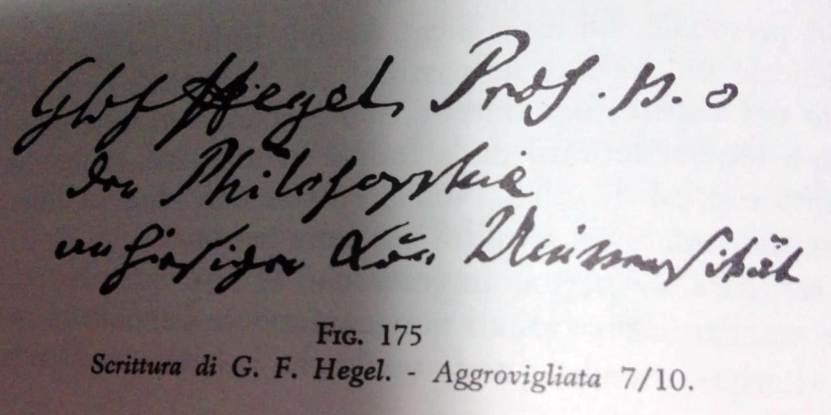 GWF Hegel, Prof. p. o
der Philosophie
an hiesiger Kön. Universität
FIG. 175
Scrittura di G. F. Hegel. - Aggrovigliata 7/10.